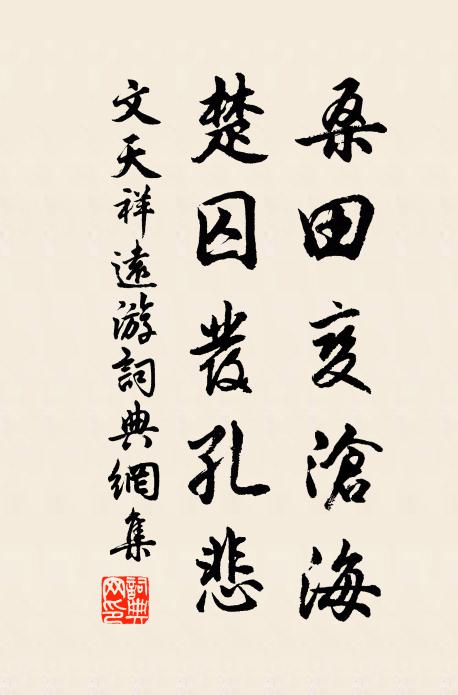 桑田变滄海
楚囚發孔悲
文天祥遠游詞典網集
詞典网印